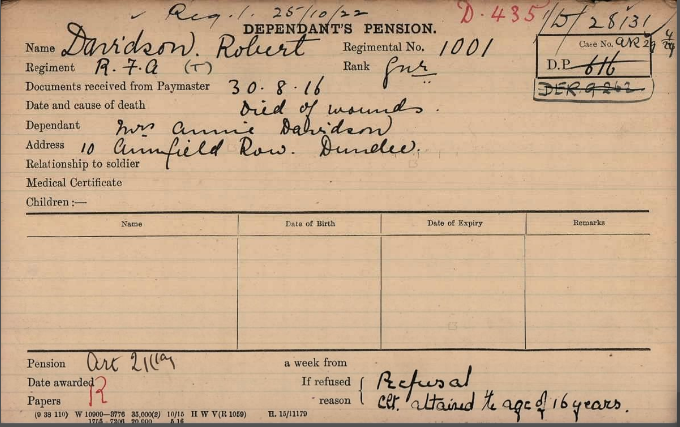 Reg. 1. 25/10/22
D. 435 1/D/ 28131
DEPENDANT'S PENSION.
Name Davidson. Robert Regimental No. 1001
Case No.
Regiment R.F.A (T) Rank Gnr
D.P. 616
Documents received from Paymaster 30.8.16
DER. 9262
Date and cause of death Died of wounds.
Dependant Mrs Annie Davidson
Address 10 Annfield Row. Dundee.
Relationship to soldier
Medical Certificate
Children :—
Name Date of Birth Date of Expiry Remarks
Pension Art 21(1)(a) a week from
Date awarded R If refused { Refusal
Papers reason Clt. attained the age of 16 years.
(9 38 110) W 10900—3776 35,000(2) 10/15 H W V(R 1059) H. 15/11179
1755—7206 20,000 5 16